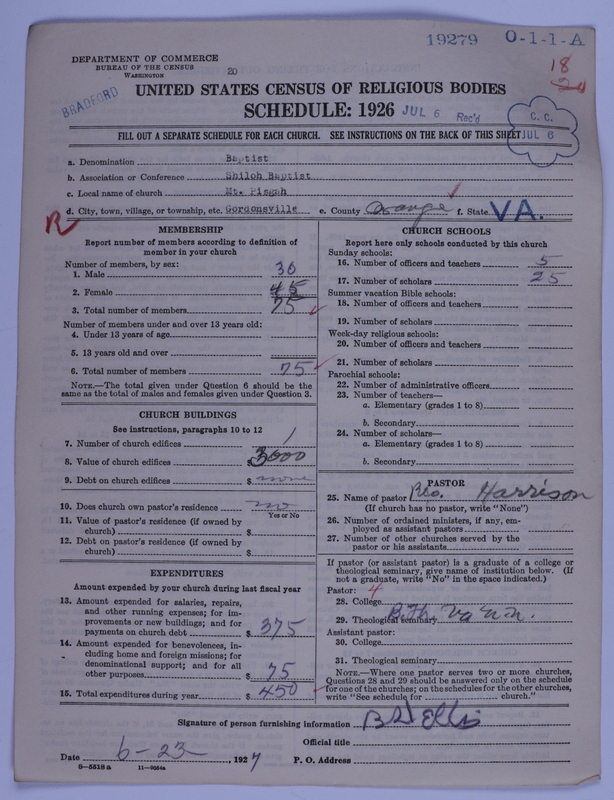 19279 O-1-1-A
18
DEPARTMENT OF COMMERCE
BUREAU OF THE CENSUS
WASHINGTON
20
BRADFORD
UNITED STATES CENSUS OF RELIGIOUS BODIES
SCHEDULE: 1926 JUL 6 Rec'd
C. C.
JUL 6
FILL OUT A SEPARATE SCHEDULE FOR EACH CHURCH. SEE INSTRUCTIONS ON THE BACK OF THIS SHEET
a. Denomination Baptist
b. Association or Conference Shiloh Baptist
c. Local name of church Mt. Pisgah
d. City, town, village, or township, etc. Gordonsville e. County Orange f. State VA.
R
MEMBERSHIP
Report number of members according to definition of
member in your church
Number of members, by sex:
1. Male 30
2. Female 45
3. Total number of members 75
Number of members under and over 13 years old:
4. Under 13 years of age
5. 13 years old and over
6. Total number of members 75
NOTE.—The total given under Question 6 should be the
same as the total of males and females given under Question 3.
CHURCH BUILDINGS
See instructions, paragraphs 10 to 12
7. Number of church edifices 1
8. Value of church edifices $3000
9. Debt on church edifices $ none
10. Does church own pastor's residence no
Yes or No
11. Value of pastor's residence (if owned by
church) $
12. Debt on pastor's residence (if owned by
church) $
EXPENDITURES
Amount expended by your church during last fiscal year
13. Amount expended for salaries, repairs,
and other running expenses; for im-
provements or new buildings; and for
payments on church debt $ 375
14. Amount expended for benevolences, in-
cluding home and foreign missions; for
denominational support; and for all
other purposes $ 75
15. Total expenditures during year $ 450
CHURCH SCHOOLS
Report here only schools conducted by this church
Sunday schools:
16. Number of officers and teachers 5
17. Number of scholars 25
Summer vacation Bible schools:
18. Number of officers and teachers
19. Number of scholars
Week-day religious schools:
20. Number of officers and teachers
21. Number of scholars
Parochial schools:
22. Number of administrative officers
23. Number of teachers—
a. Elementary (grades 1 to 8)
b. Secondary
24. Number of scholars—
a. Elementary (grades 1 to 8)
b. Secondary
PASTOR
25. Name of pastor Harrison
(If church has no pastor, write "None")
26. Number of ordained ministers, if any, em-
ployed as assistant pastors
27. Number of other churches served by the
pastor or his assistants
If pastor (or assistant pastor) is a graduate of a college or
theological seminary, give name of institution below. (If
not a graduate, write "No" in the space indicated.)
Pastor: 4
28. College
29. Theological seminary B.Th. Va Un.
Assistant pastor:
30. College
31. Theological seminary
NOTE.—Where one pastor serves two or more churches,
Questions 28 and 29 should be answered only on the schedule
for one of the churches; on the schedules for the other churches,
write "See schedule for church."
Signature of person furnishing information Ellis
Official title
Date 6-23, 1927 P. O. Address
8—5518 a